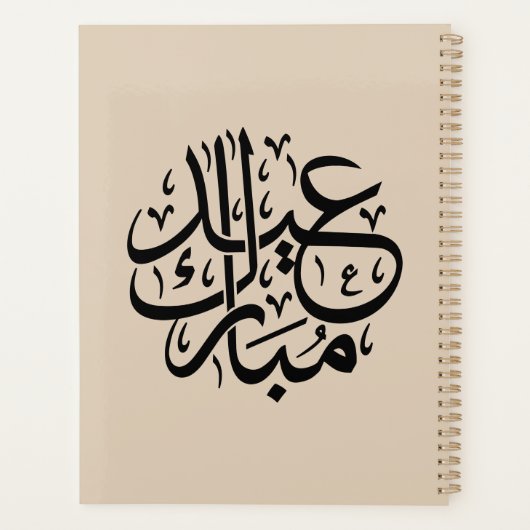 عيد
مُبَارك